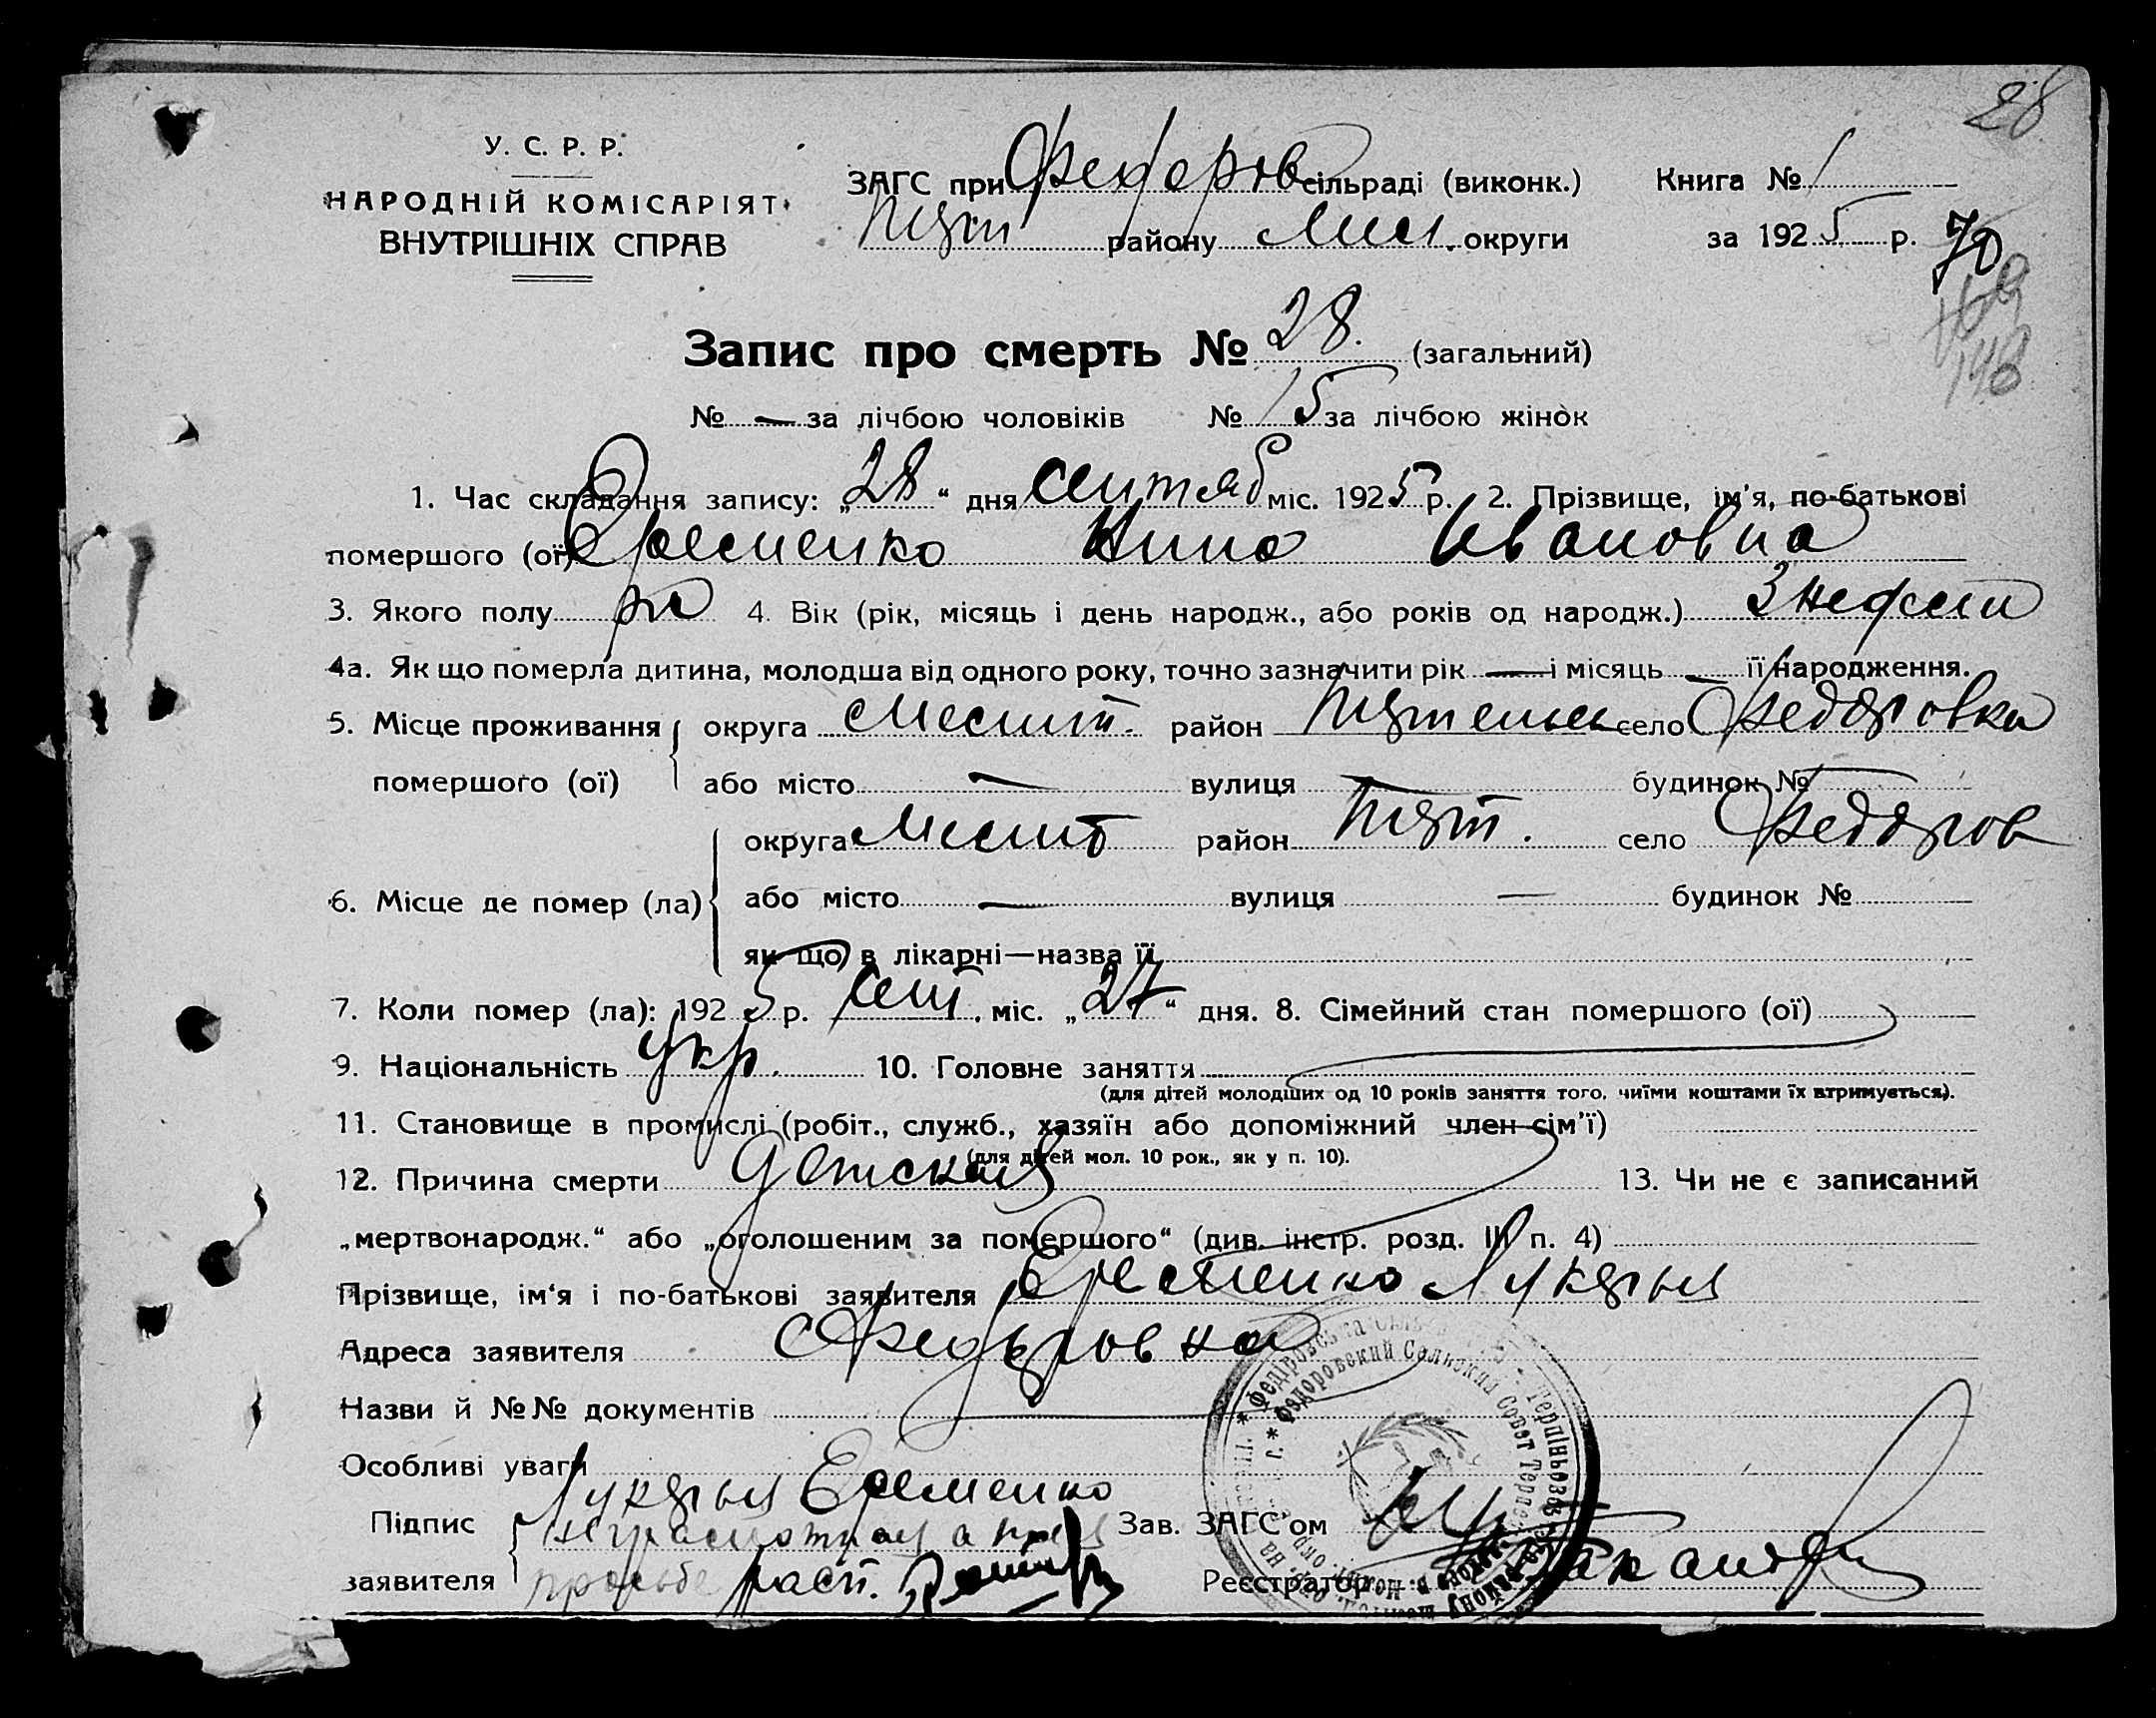 28
У. С. Р. Р.
НАРОДНІЙ КОМІСАРІЯТ
ВНУТРІШНІХ СПРАВ
ЗАГС при Федоров сільраді (виконк.) Книга № 1
району округи за 1925 р. 70
169
148
Запис про смерть № 28. (загальний)
№ — за лічбою чоловіків № 15 за лічбою жінок
1. Час складання запису: „28“ дня сентяб міс. 1925 р. 2. Прізвище, ім'я, по-батькові
помершого (ої) Еременко Нина Ивановна
3. Якого полу 4. Вік (рік, місяць і день народж., або років од народж.) 3 недели
4а. Як що померла дитина, молодша від одного року, точно зазначити рік — і місяць — її народження.
5. Місце проживання округа район село Федоровка
помершого (ої) або місто — вулиця — будинок № —
округа район село Федоров
6. Місце де помер (ла) або місто — вулиця — будинок №
як що в лікарні—назва її
7. Коли помер (ла): 1925 р. сент. міс. „27“ дня. 8. Сімейний стан помершого (ої)
9. Національність укр. 10. Головне заняття
(для дітей молодших од 10 років заняття того, чиїми коштами їх втримується).
11. Становище в промислі (робіт., служб., хазяїн або допоміжний член сім'ї)
(для дітей мол. 10 рок., як у п. 10).
12. Причина смерти Детская 13. Чи не є записаний
„мертвонародж.“ або „оголошеним за помершого“ (див. інстр. розд. III п. 4)
Прізвище, ім'я і по-батькові заявителя Еременко Лукерья
Адреса заявителя с Федоровка
Назви й №№ документів
Особливі уваги
Лукерья Еременко
Підпис неграмотная а по ея Зав. ЗАГС'ом
заявителя просьбе расп. Реєстратор
Федоровский Сельский Совет